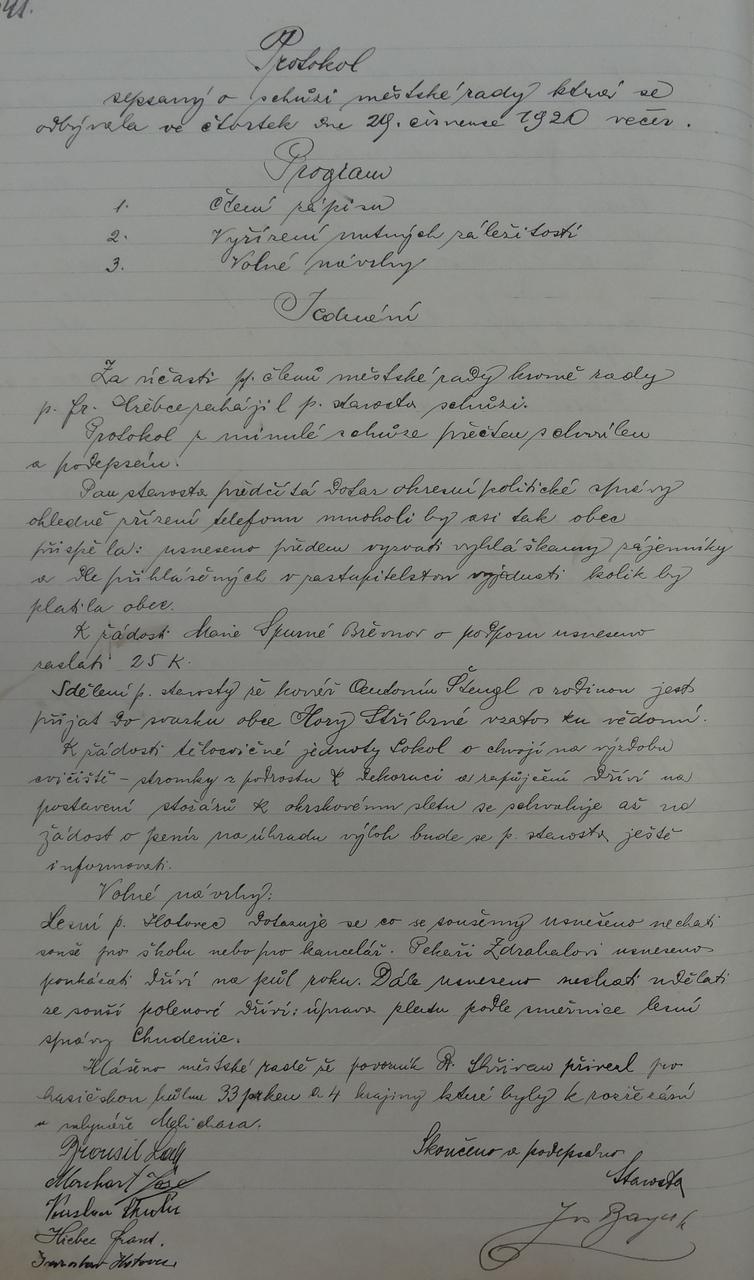 Protokol
sepsaný o schůzi městské rady která se
odbývala ve čtvrtek dne 29. července 1920 večer.
Program
1. Čtení zápisu
2. Vyřízení nutných záležitostí
3. Volné návrhy
Jednání
Za účasti pp. členů městské rady kromě rady
p. Fr. Hřebce zahájil p. starosta schůzi.
Protokol z minulé schůze přečten schválen
a podepsán.
Pan starosta předčítá dotaz okresní politické správy
ohledně zřízení telefonu mnoholi by asi tak obec
přispěla: usneseno předem vyzvati vyhláškamy zájemníky
a dle přihlášěných v zastupitelstvu vyjednati kolik by
platila obec.
K žádosti Marie Spurné Břevnov o podporu usneseno
zaslati 25 K.
Sdělení p. starosty že kovář Antonín Štengl s rodinou jest
přijat do svazku obce Hory Stříbrné vzato ku vědomí.
K žádosti tělocvičné jednoty Sokol o chvojí na výzdobu
cvičiště – stromky z podrostu k dekoraci a zapůjčení dříví na
postavení stožárů k okrskovému sletu se schvaluje až na
žádost o peníz na úhradu výloh bude se p. starosta ještě
informovati.
Volné návrhy:
Lesní p. Hotovec dotazuje se co se soušemy usnešeno nechati
souše pro školu nebo pro kancelář. Pekaři Zdrahalovi usneseno
poukázati dříví na půl roku. Dále usneseno nechati udělati
ze souší polenové dříví: úprava platu podle směrnice lesní
správy Chudenic.
Hlášeno městské radě že povozník R. Skřivan přivezl pro
hasičskou kůlnu 33 prken a 4 krajiny které byly k rozřezání
u mlynáře Melichara.
Skončeno a podepsáno
Brousil
Starosta
Hřebec Frant.
Jaroslav Hotovec